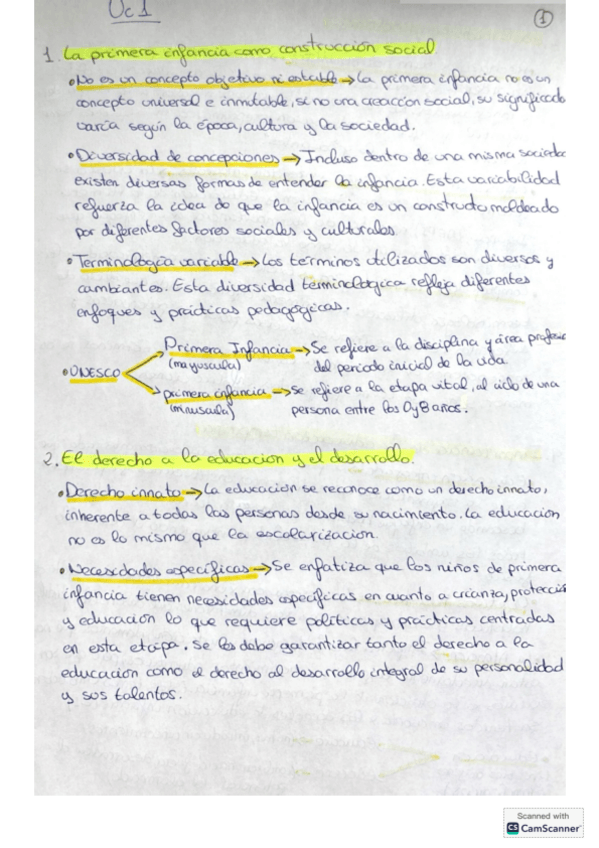 Uc1
1
1. La primera infancia como construcción social
• No es un concepto objetivo ni estable → La primera infancia no es un
concepto universal e inmutable, si no una creacción social, su significado
varía según la época, cultura y la sociedad.
• Diversidad de concepciones → Incluso dentro de una misma sociedad
existen diversas formas de entender la infancia. Esta variabilidad
refuerza la idea de que la infancia es un constructo moldeado
por diferentes factores sociales y culturales.
• Terminología variable → Los términos utilizados son diversos y
cambiantes. Esta diversidad terminologica refleja diferentes
enfoques y prácticas pedagógicas.
• UNESCO
Primera Infancia → Se refiere a la disciplina y área profesio
(mayuscula) del periodo inicial de la vida
primera infancia → Se refiere a la etapa vital, al ciclo de una
(minuscula) persona entre los 0 y 8 años.
2. El derecho a la educacion y el desarrollo.
• Derecho innato → La educación se reconoce como un derecho innato,
inherente a todas las personas desde su nacimiento. La educación
no es lo mismo que la escolarización.
• Necesidades específicas → Se enfatiza que los niños de primera
infancia tienen necesidades específicas en cuanto a crianza, protección
y educación lo que requiere políticas y prácticas centradas
en esta etapa. Se les debe garantizar tanto el derecho a la
educación como el derecho al desarrollo integral de su personalidad
y sus talentos.
Scanned with
CS CamScanner